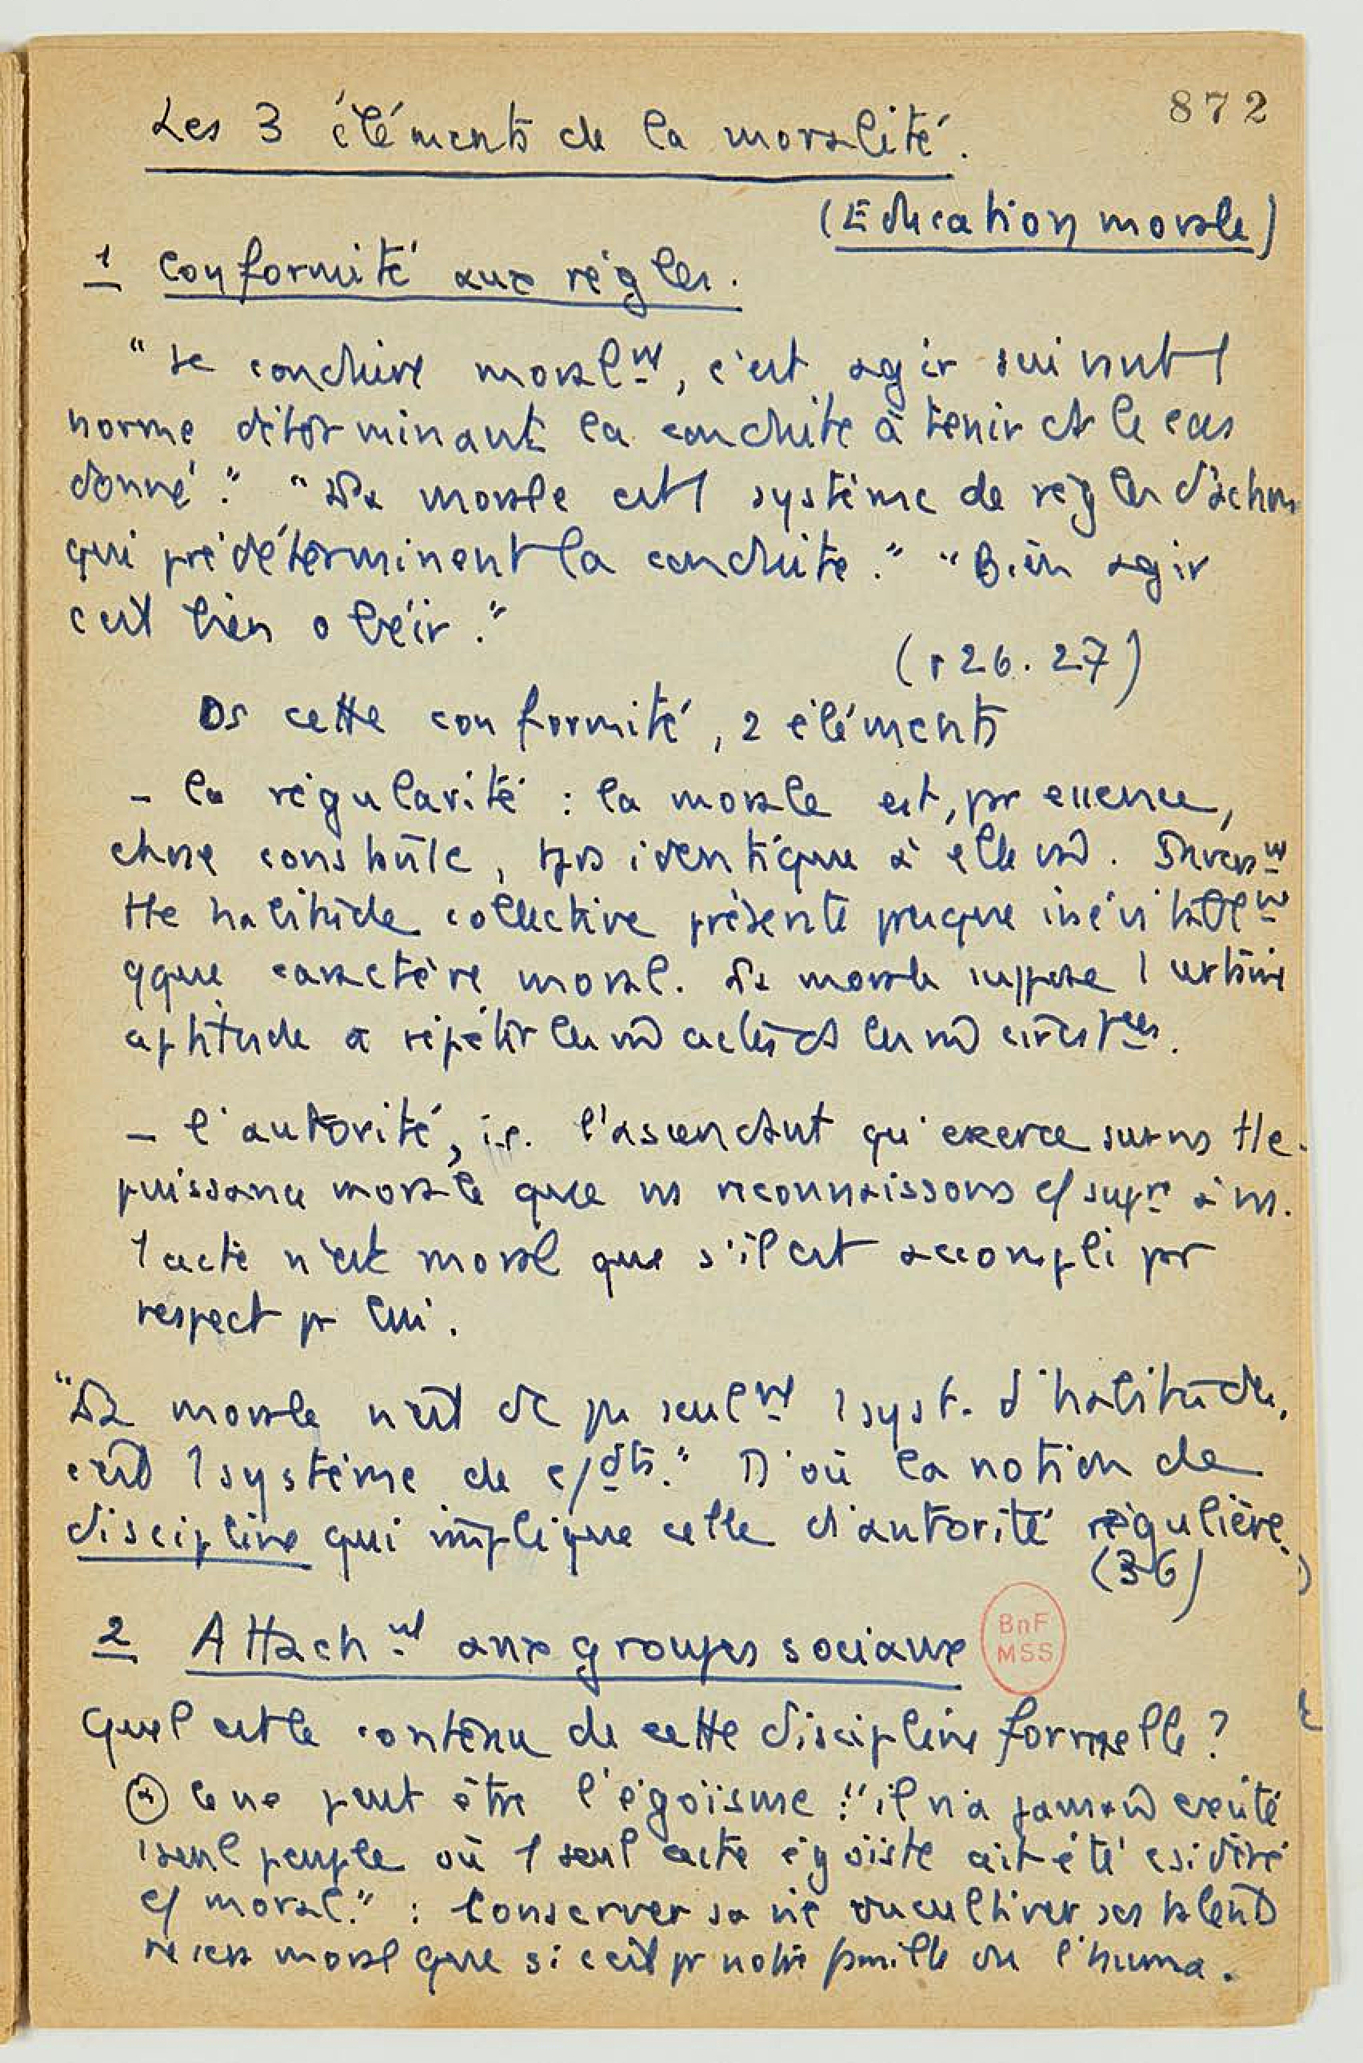 872
Les 3 éléments de la moralité.
(Education morale)
1 Conformité aux règles.
"Se conduire moralmt, c'est agir suivant 1
norme déterminant la conduite à tenir ds le cas
donné." "La morale est 1 système de règles d'action
qui prédéterminent la conduite." "Bien agir
c'est bien obéir."
(p 26. 27)
Ds cette conformité, 2 éléments
- la régularité : la morale est, par essence,
chose constante, tjrs identique à elle m̂. Inversmt
tte habitude collective présente presque inévitablmt
qque caractère moral. La morale suppose 1 certaine
aptitude à répéter les m̂ actes ds les m̂ circstces.
- l'autorité, i.e. l'ascendant qu'exerce sur ns tte
puissance morale que ns reconnaissons c/ supr à ns.
1 acte n'est moral que s'il est accompli par
respect pr lui.
"La morale n'est dc pas seulmt 1 syst. d'habitudes,
c'est 1 système de c/dts." D'où la notion de
discipline qui implique celle d'autorité régulière.
(36)
2 Attachmt aux groupes sociaux
BnF
MSS
Quel est le contenu de cette discipline formelle ?
a Ce ne peut être l'égoïsme : "il n'a jamais existé
1 seul peuple où 1 seul acte égoïste ait été csidéré
c/ moral." : Conserver sa vie ou cultiver ses talents
ne sera moral que si c'est pr notre famille ou l'huma.